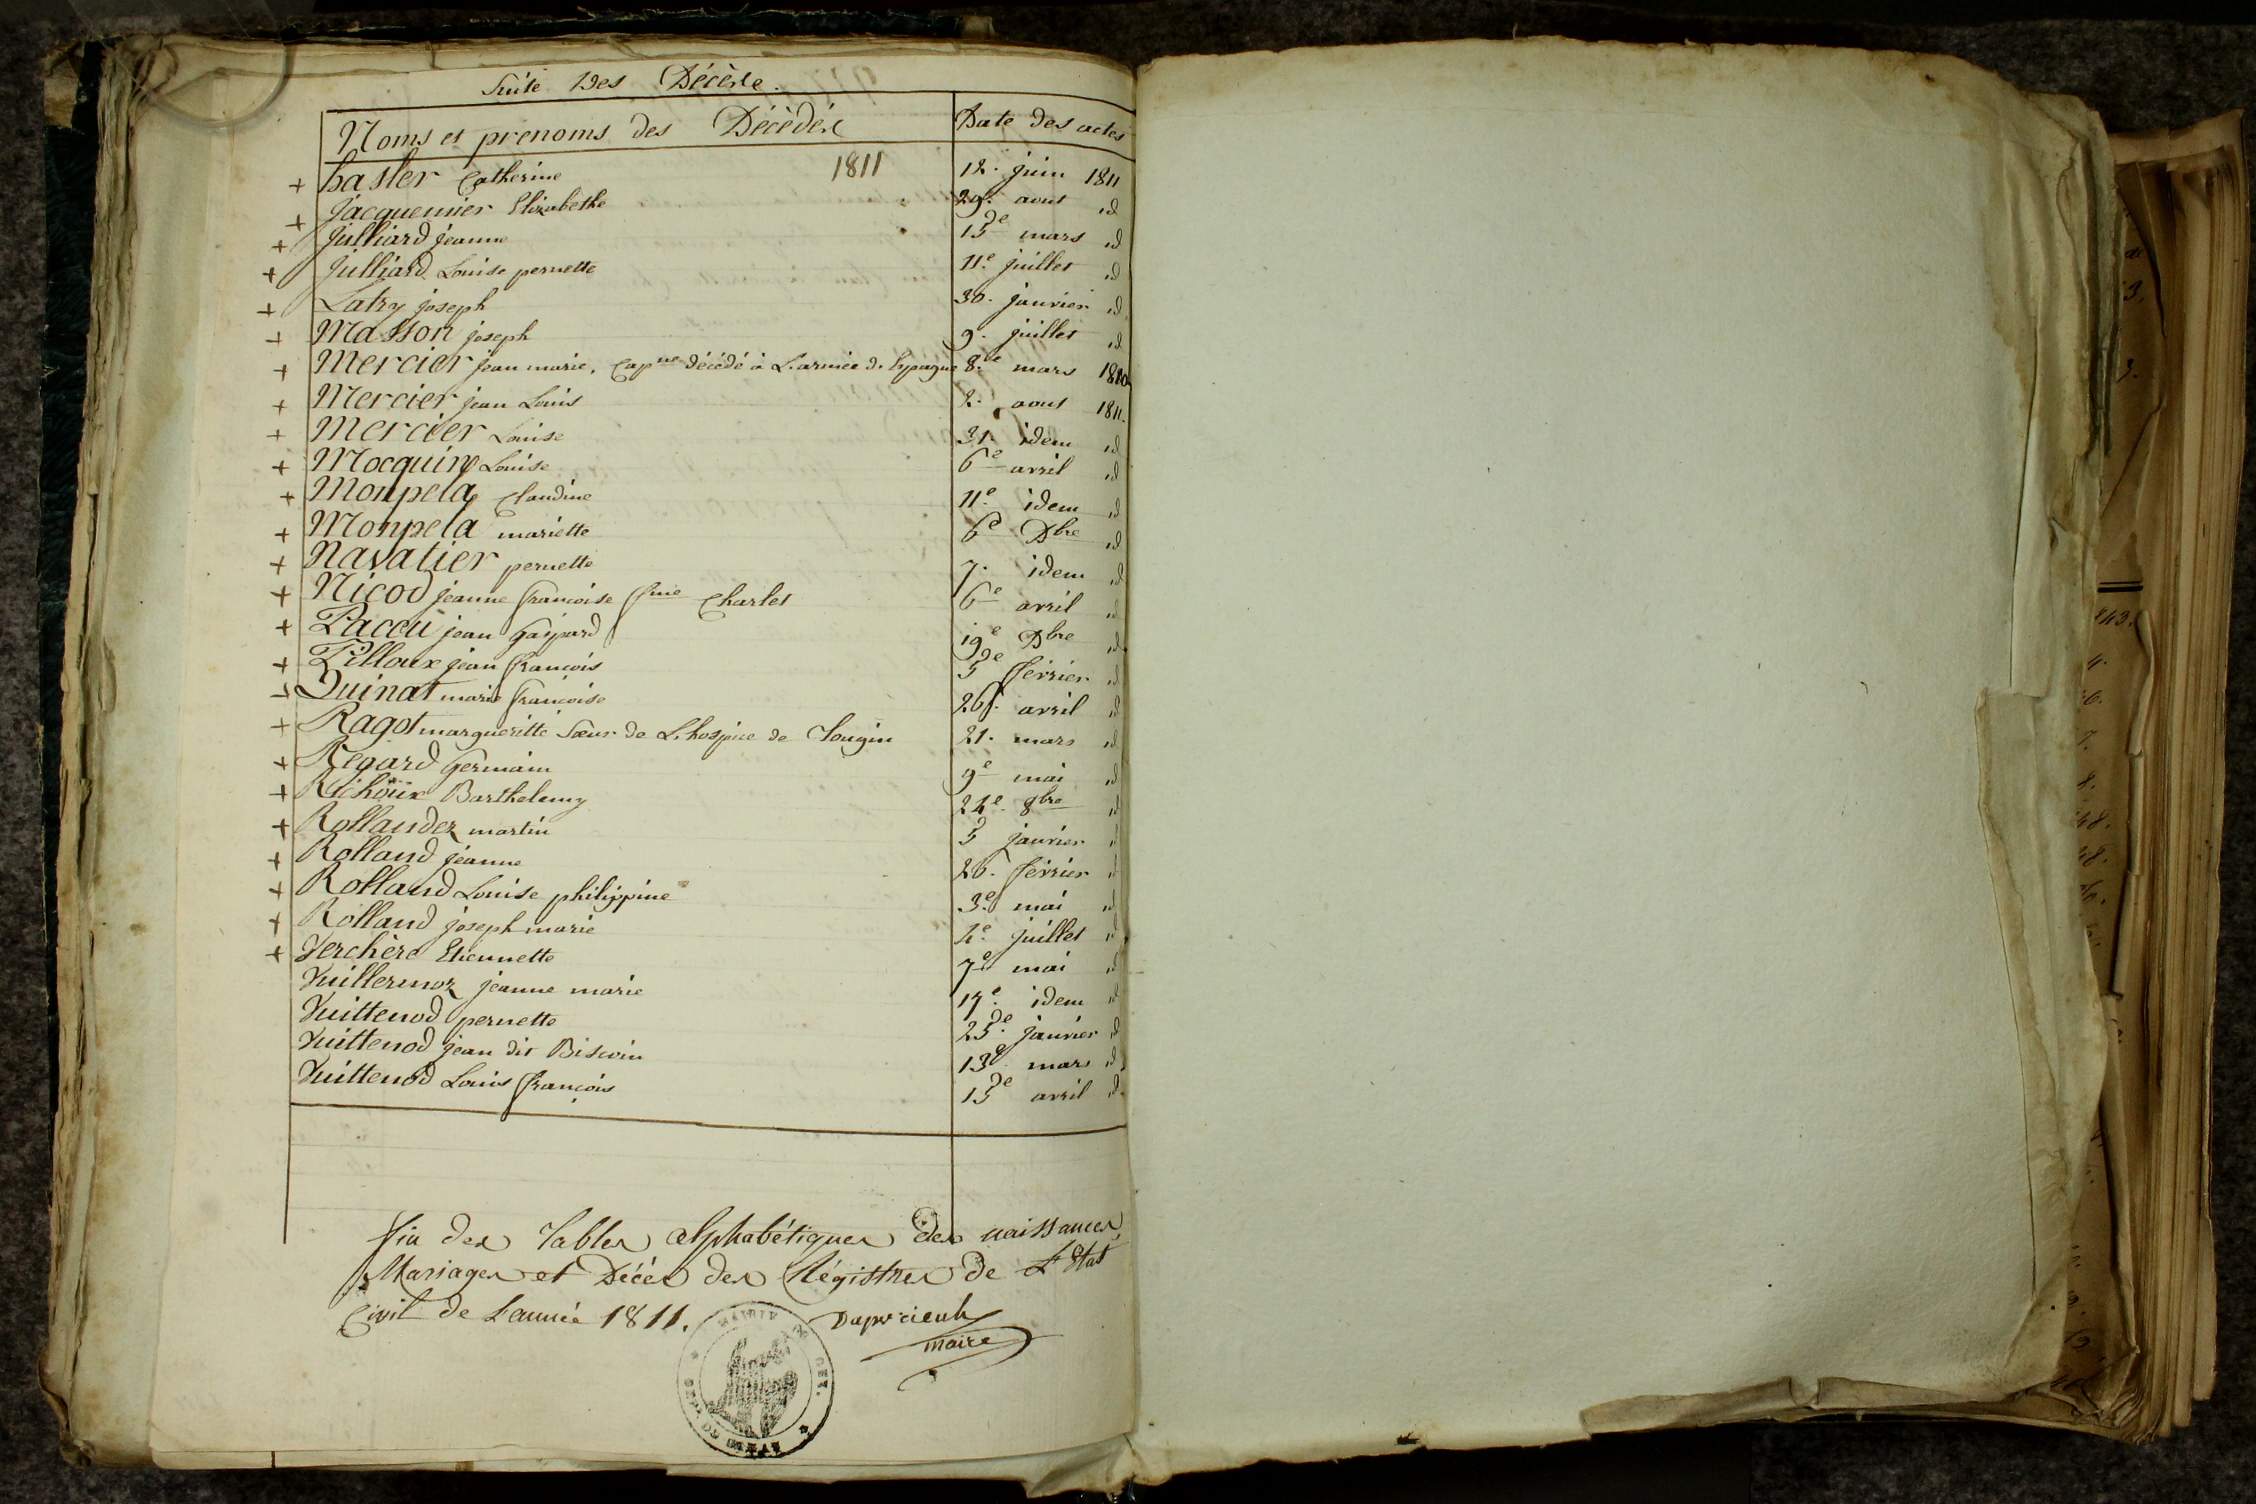 Suite Des Décès.
Noms et prenoms des Décédés Date des actes
1811
hasler Catherine 12. juin 1811
Jacquemier Elizabethe 29. aout id
Julliard jeanne 15e mars id
Julliard Louise pernette 11e juillet id
Latry joseph 30. janvier id
Masson joseph 9. juillet id
Mercier jean marie, Capne décédé à L'armée d'Espagne 8e mars 1810
Mercier jean Louis 2. aout 1811.
Mercier Louise 31. idem id
Mocquin Louise 6e avril id
Monpela Claudine 11e idem id
Monpela mariette 6e Dbre id
Navatier pernette 7. idem id
Nicod jeanne françoise fme Charlet 6e avril id
Paccu jean Gaspard 19e Dbre id
Pilloux jean françois 5e février id
Quinat marie françoise 26. avril id
Ragot margueritte Sœur de L'hospice de Tougin 21. mars id
Regard Germain 9e mai id
Richoux Barthelemy 24e 8bre id
Rollandez martin 5 janvier id
Rolland jeanne 26. février id
Rolland Louise philippine 3e mai id
Rolland joseph marie 4e juillet id
Verchère Etiennette 7e mai id
Vuillermoz jeanne marie 17e idem id
Vuittenod pernette 25e janvier id
Vuittenod jean dit Biscoin 13e mars id
Vuittenod Louis françois 15e avril id.
fin des Tables alphabétiques des naissances,
Mariages et Décès des Régistres de L'Etat
Civil de L'année 1811.
maire
MAIRIE DE GEX.